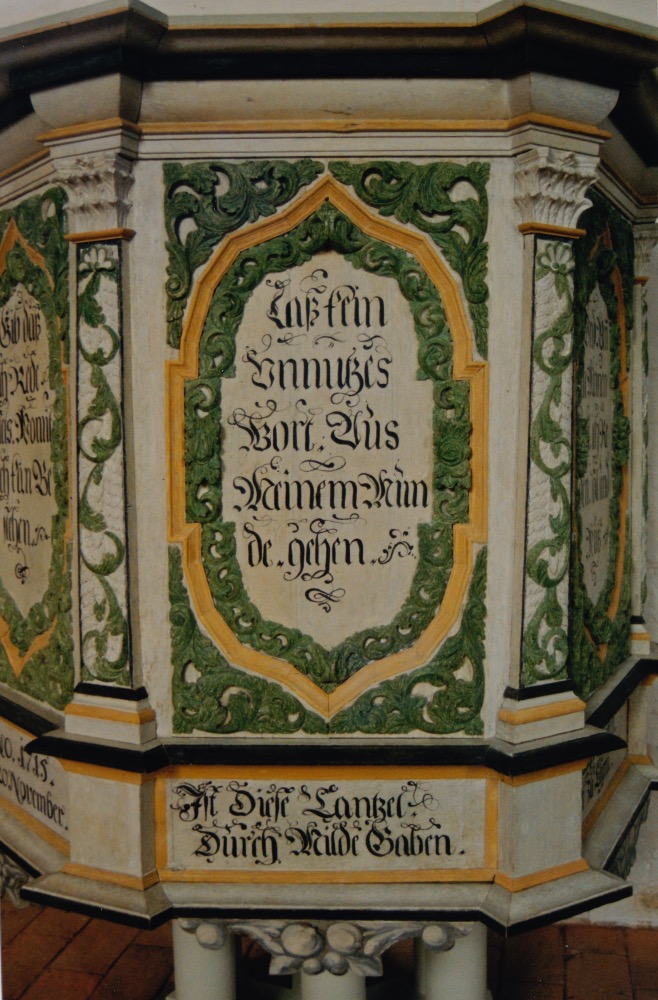 Gib daß
Rede
Womit
kan Be
stehen.
Laß kein
Vnnützes
Wort. Aus
Meinem Mun
de. gehen.
1715.
November.
Ist Diese Cantzel.
Durch Milde Gaben.